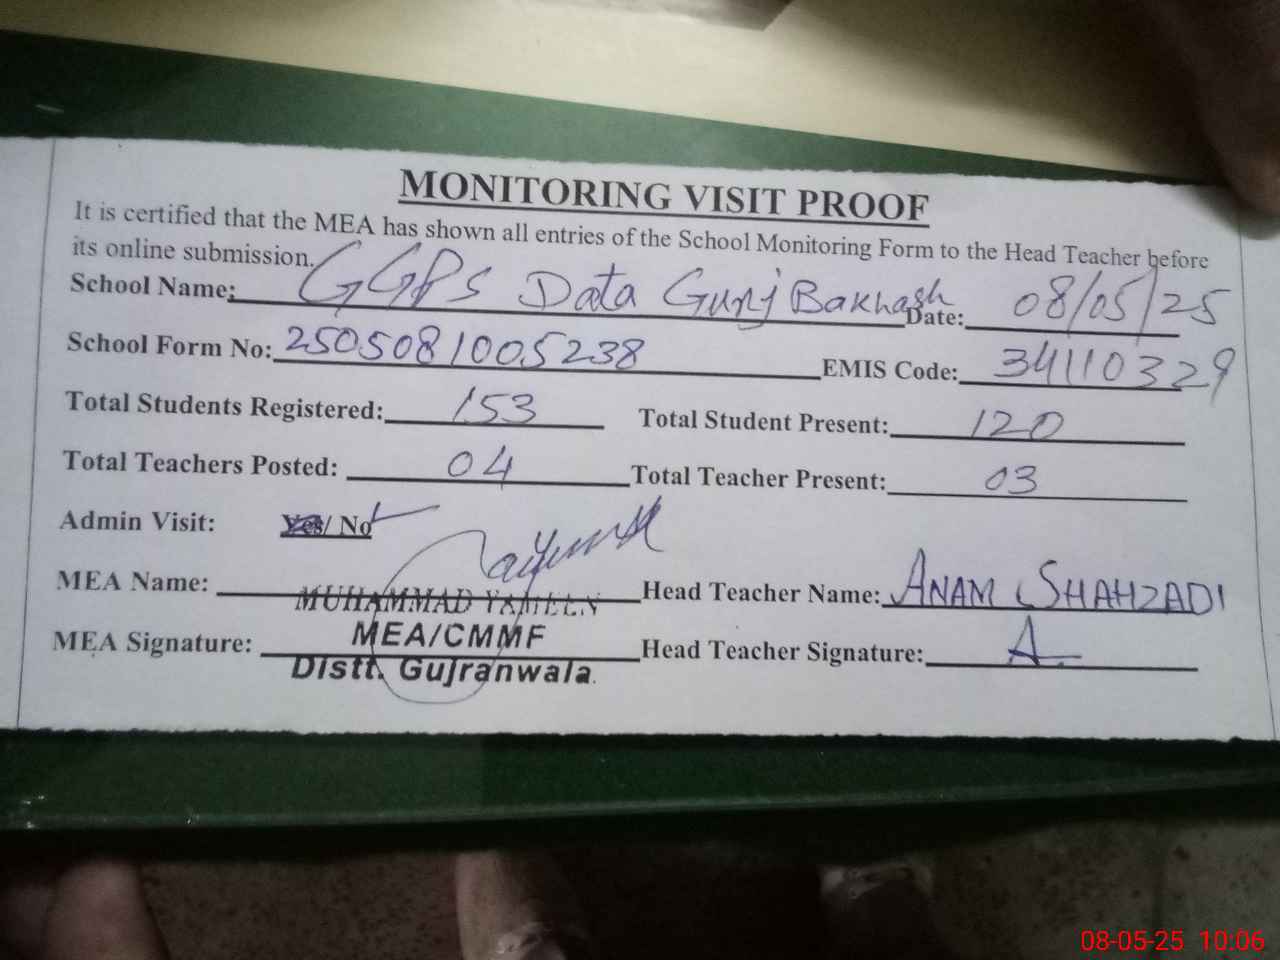 MONITORING VISIT PROOF
It is certified that the MEA has shown all entries of the School Monitoring Form to the Head Teacher before
its online submission.
School Name: GGPS Data Gunj Bakhash Date: 08/05/25
School Form No: 2505081005238 EMIS Code: 34110329
Total Students Registered: 153 Total Student Present: 120
Total Teachers Posted: 04 Total Teacher Present: 03
Admin Visit: Yes/ No
MEA Name: MUHAMMAD YAMEEN Head Teacher Name: ANAM SHAHZADI
MEA/CMMF
MEA Signature: Head Teacher Signature: A
Distt. Gujranwala.
08-05-25 10:06